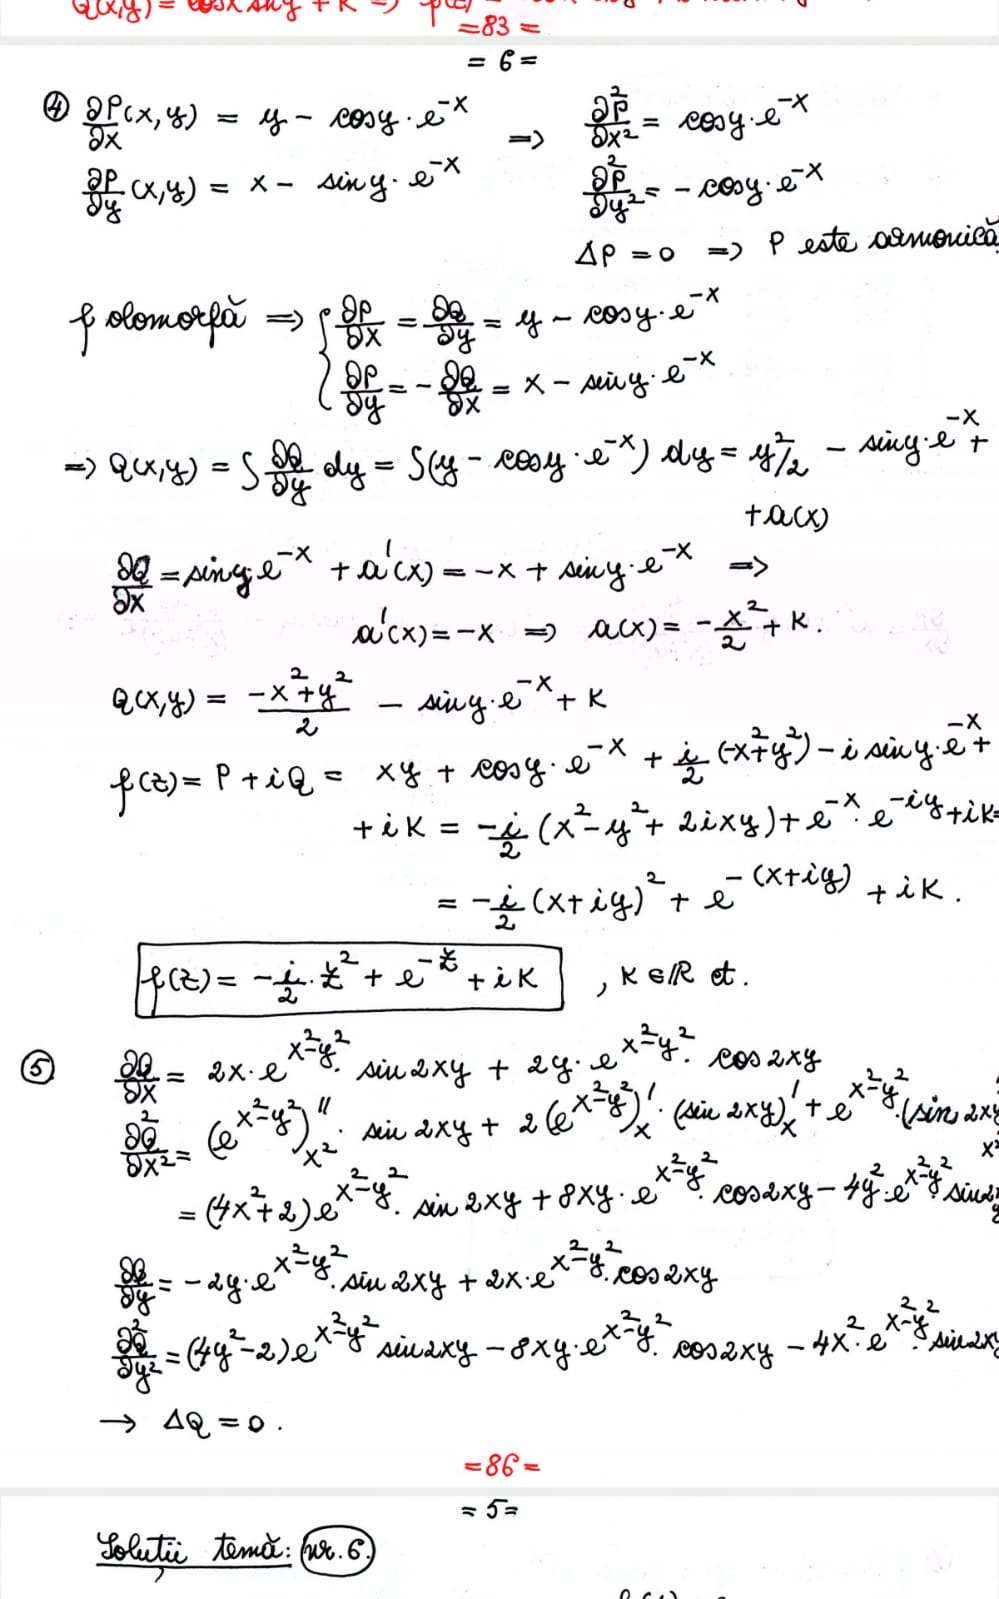 Q(x,y) = cosx siny + K => f(z) =
= 83 =
= 6 =
④ ∂P/∂x (x,y) = y − cosy·e^{-x} => ∂²P/∂x² = cosy·e^{-x}
∂P/∂y (x,y) = x − siny·e^{-x} ∂²P/∂y² = −cosy·e^{-x}
ΔP = 0 => P este armonică
f olomorfă => { ∂P/∂x = ∂Q/∂y = y − cosy·e^{-x}
∂P/∂y = −∂Q/∂x = x − siny·e^{-x}
=> Q(x,y) = ∫ ∂Q/∂y dy = ∫(y − cosy·e^{-x}) dy = y²/2 − siny·e^{-x} +
+ a(x)
∂Q/∂x = siny·e^{-x} + a'(x) = −x + siny·e^{-x} =>
a'(x) = −x => a(x) = −x²/2 + K.
Q(x,y) = (−x²+y²)/2 − siny·e^{-x} + K
f(z) = P + iQ = xy + cosy·e^{-x} + i/2 (−x²+y²) − i siny·e^{-x} +
+ iK = −i/2 (x²−y² + 2ixy) + e^{-x}·e^{-iy} + iK =
= −i/2 (x+iy)² + e^{-(x+iy)} + iK.
f(z) = −i/2·z² + e^{-z} + iK , K∈ℝ ct.
⑤ ∂Q/∂x = 2x·e^{x²−y²}·sin2xy + 2y·e^{x²−y²}·cos2xy
∂²Q/∂x² = (e^{x²−y²})''_{x²}·sin2xy + 2(e^{x²−y²})'_x·(sin2xy)'_x + e^{x²−y²}·(sin2xy
= (4x²+2)e^{x²−y²}·sin2xy + 8xy·e^{x²−y²}·cos2xy − 4y²·e^{x²−y²}·sin2xy
∂Q/∂y = −2y·e^{x²−y²}·sin2xy + 2x·e^{x²−y²}·cos2xy
∂²Q/∂y² = (4y²−2)e^{x²−y²}sin2xy − 8xy·e^{x²−y²}·cos2xy − 4x²·e^{x²−y²}·sin2xy
→ ΔQ = 0.
= 86 =
= 5 =
Soluții temă: nr. 6.